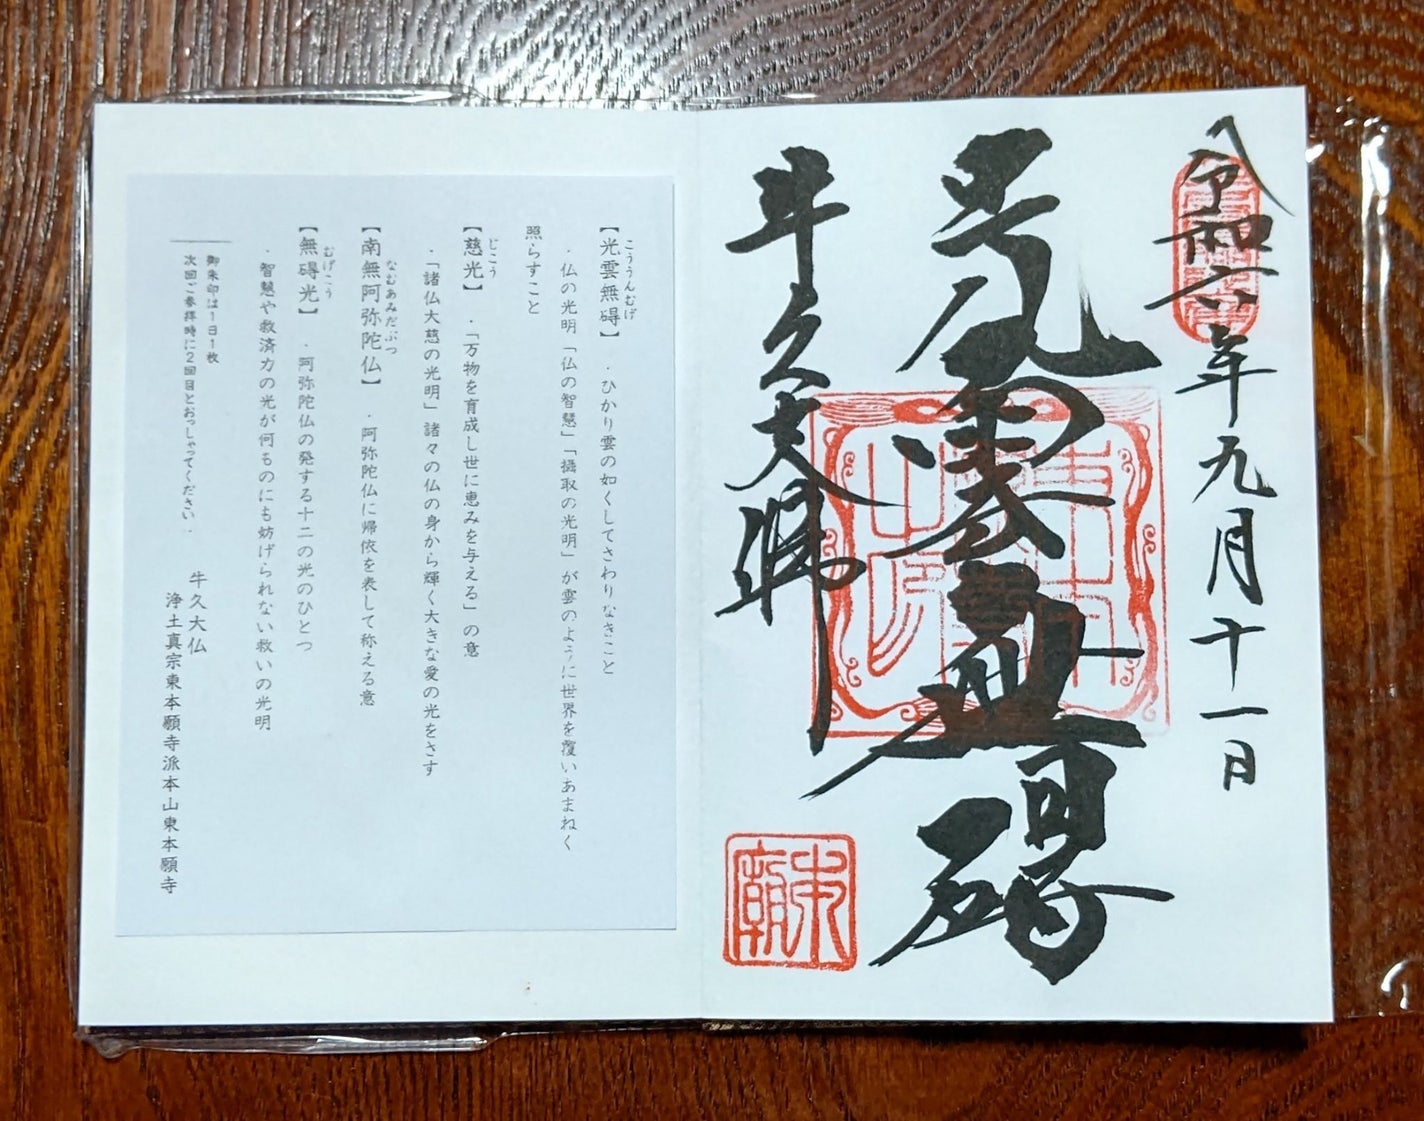 令和六年九月十一日
光雲無碍
牛久大佛
東廟
【光雲無碍】・ひかり雲の如くしてさわりなきこと
こううんむげ
・仏の光明「仏の智慧」「摂取の光明」が雲のように世界を覆いあまねく
照らすこと
【慈光】・「万物を育成し世に恵みを与える」の意
じこう
・「諸仏大慈の光明」諸々の仏の身から輝く大きな愛の光をさす
【南無阿弥陀仏】・阿弥陀仏に帰依を表して称える意
なむあみだぶつ
【無碍光】・阿弥陀仏の発する十二の光のひとつ
むげこう
・智慧や救済力の光が何ものにも妨げられない救いの光明
御朱印は1日1枚
次回ご参拝時に2回目とおっしゃってください。
牛久大仏
浄土真宗東本願寺派本山東本願寺